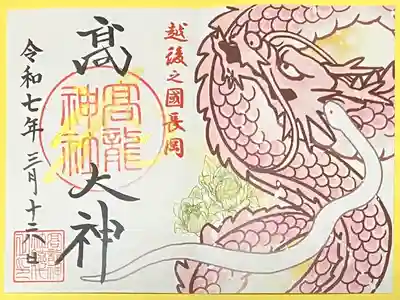 越後之國長岡
髙
大神
高龍
神社
令和七年 三月十六日